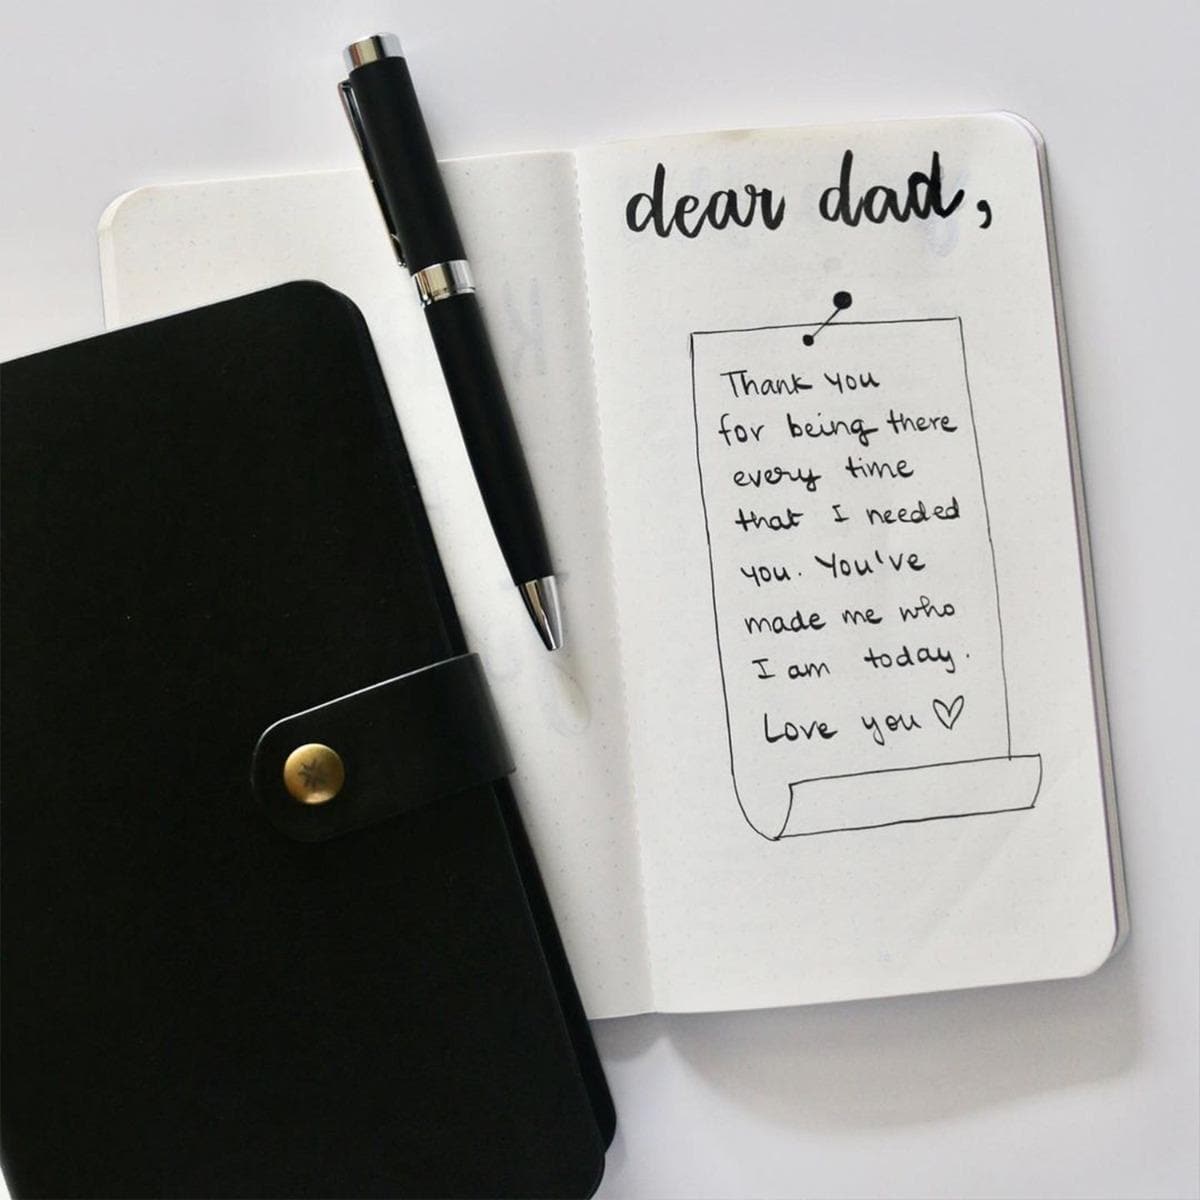 dear dad,
Thank you
for being there
every time
that I needed
you. You've
made me who
I am today.
Love you ♡